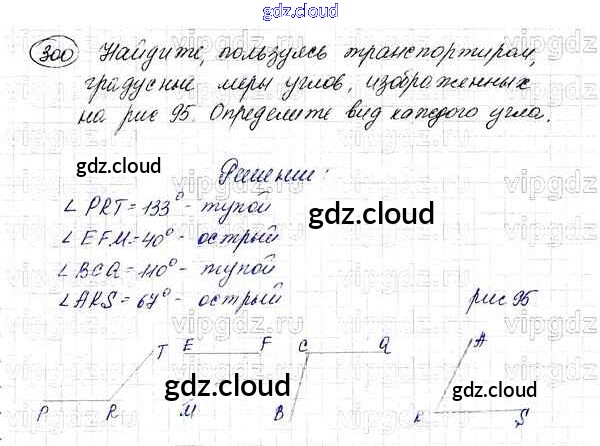 gdz.cloud
300 Найдите, пользуясь транспортиром,
градусные меры углов, изображенных
на рис 95. Определите вид каждого угла.
gdz.cloud
Решение:
∠ PRT = 133° - тупой
gdz.cloud
∠ EFM = 40° - острый
∠ BCQ = 110° - тупой
∠ AKS = 67° - острый
рис 95
T E F C Q A
gdz.cloud gdz.cloud
P R M B K S
gdz.cloud